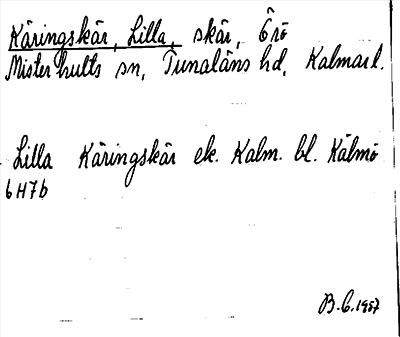 Käringskär, Lilla, skär, Örö
Misterhults sn, Tunaläns hd, Kalmar l.
Lilla Käringskär ek. Kalm. bl. Kälmö
6H7b
B.C. 1957